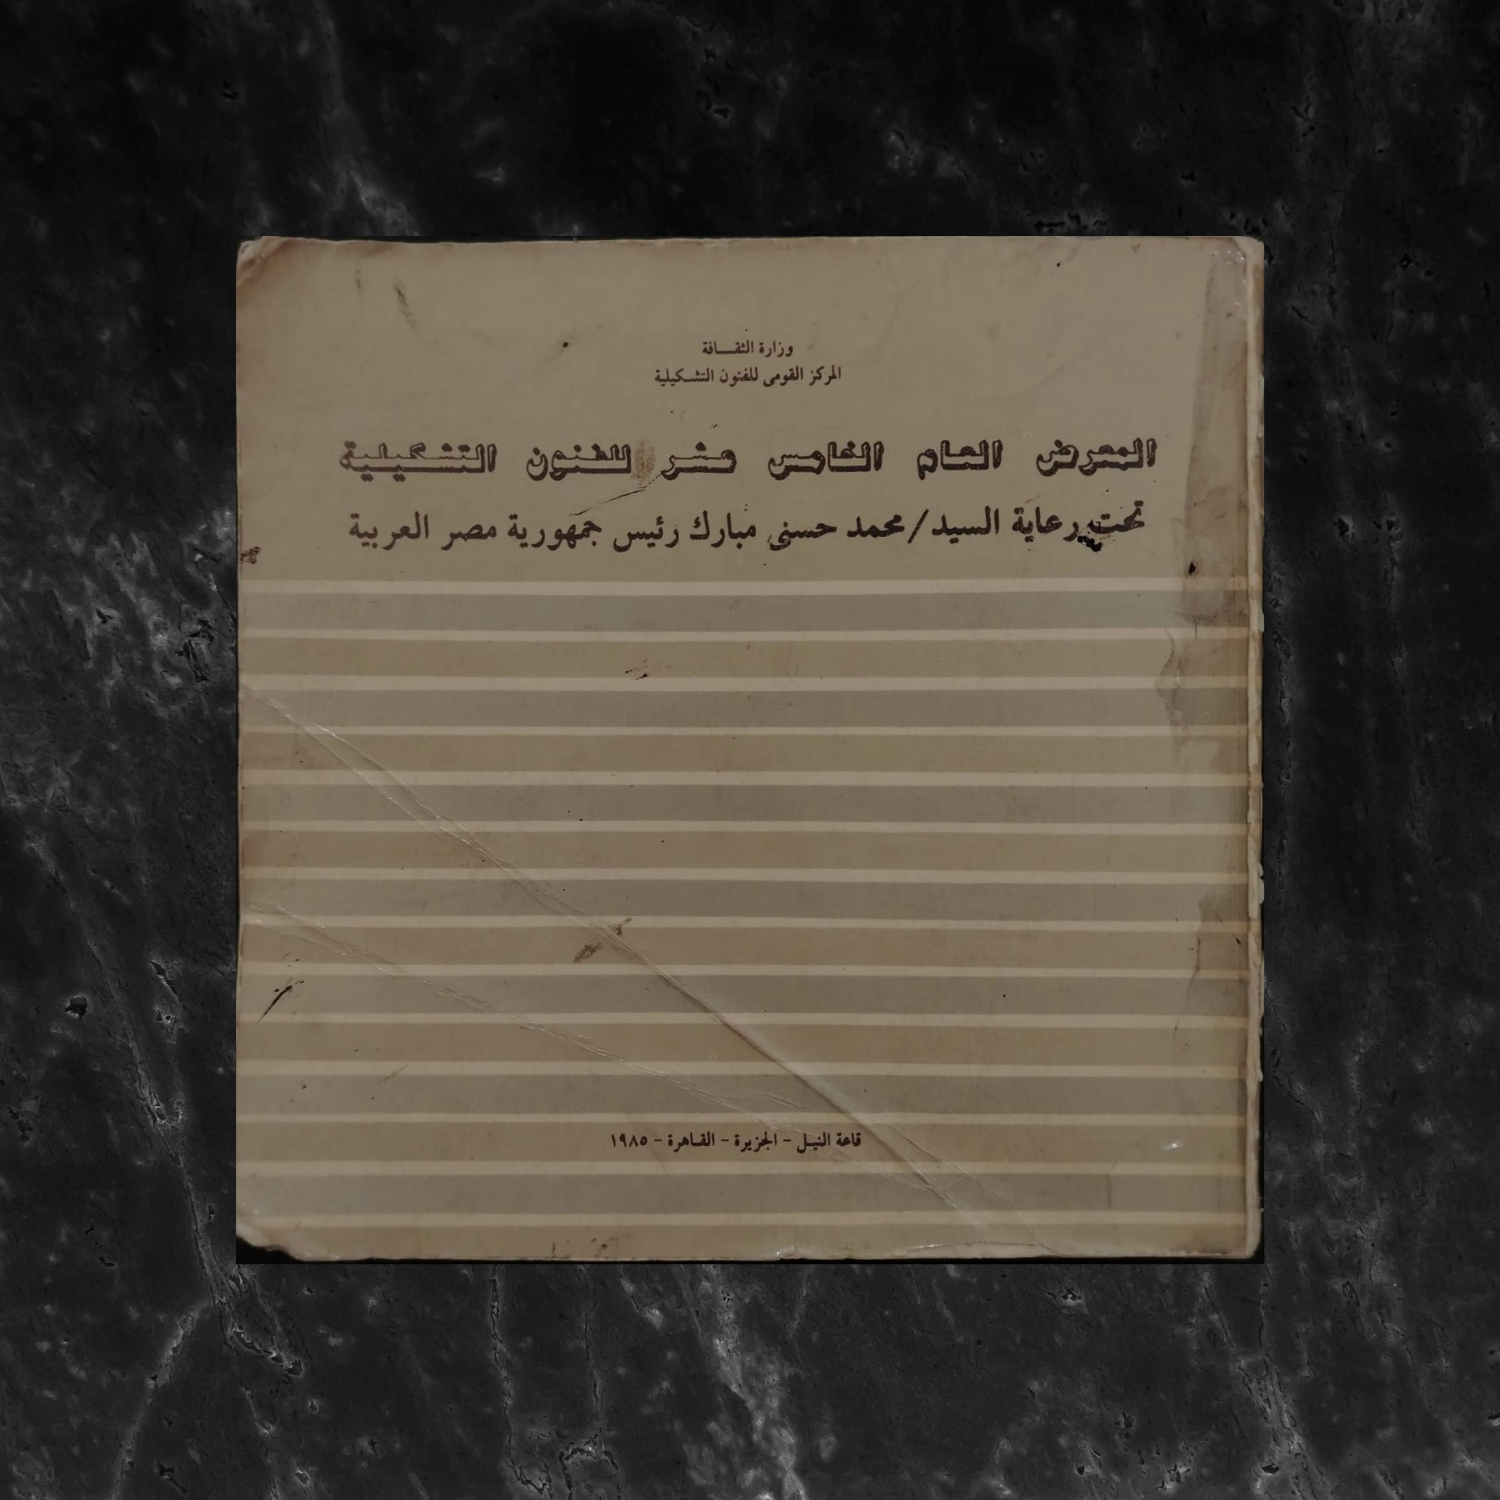 وزارة الثقـــافة
المركز القومى للفنون التشـكيلية
المعرض العام الخامس عشر للفنون التشكيلية
تحت رعاية السيد/محمد حسنى مبارك رئيس جمهورية مصر العربية
قاعة النيـل - الجزيرة - القـاهرة - ١٩٨٥